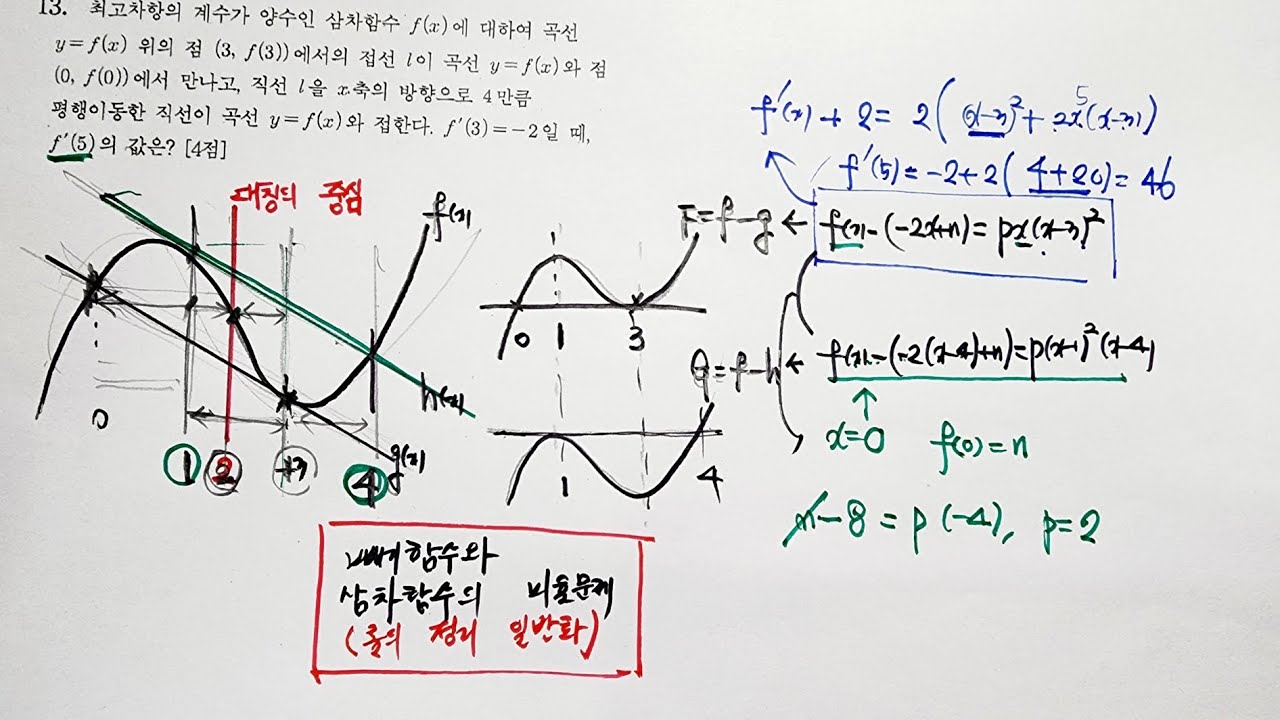 13. 최고차항의 계수가 양수인 삼차함수 f(x)에 대하여 곡선
y=f(x) 위의 점 (3, f(3))에서의 접선 l이 곡선 y=f(x)와 점
(0, f(0))에서 만나고, 직선 l을 x축의 방향으로 4만큼
평행이동한 직선이 곡선 y=f(x)와 접한다. f′(3)=-2일 때,
f′(5)의 값은? [4점]
대칭의 중심
f(x)
h(x)
g(x)
0
1 2 +3 4
F=f-g
0 1 3
G=f-h
1 4
f′(x)+2=2((x-3)²+2x(x-3))
5
f′(5)=-2+2(4+20)=46
← f(x)-(-2x+n)=px(x-3)²
← f(x)-(-2(x-4)+n)=p(x-1)²(x-4)
↑
x=0 f(0)=n
n-8=p(-4), p=2
빼기함수와
삼차함수의 비율문제
(롤의 정리 일반화)